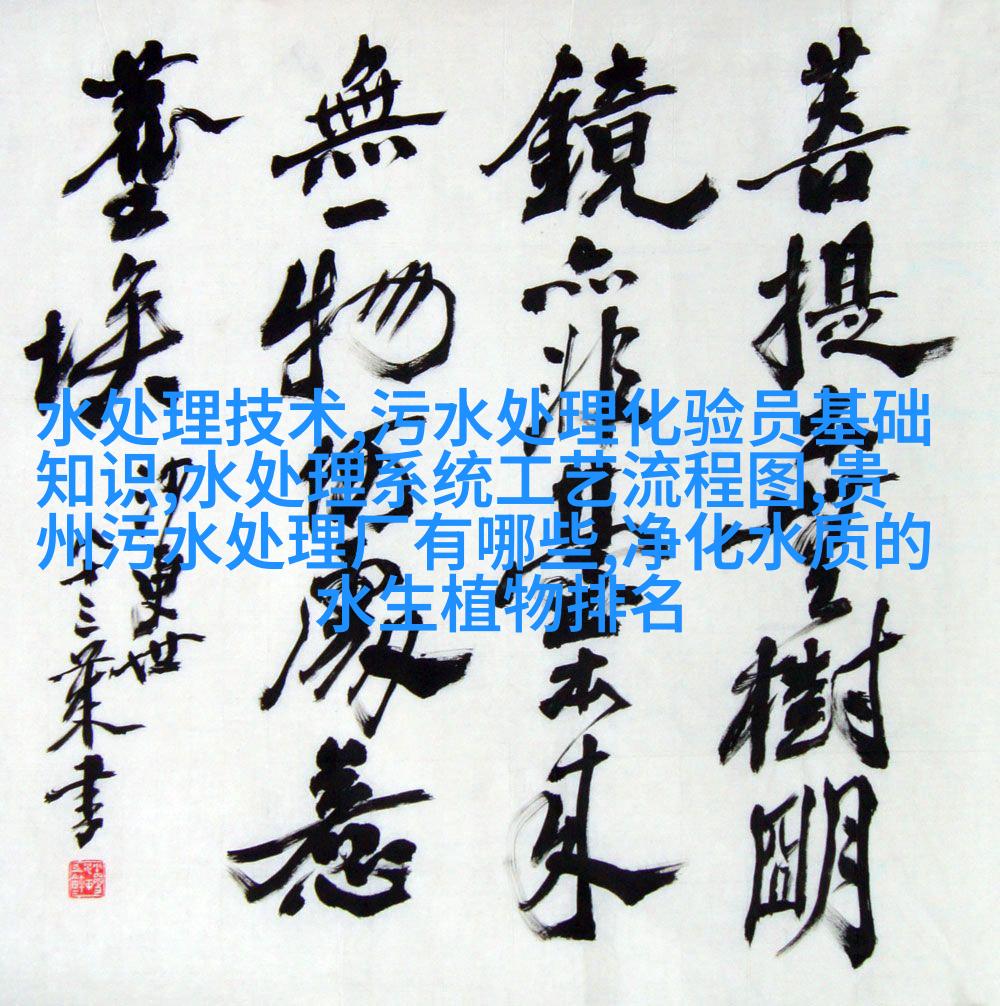 水处理技术,污水处理化验员基础
知识,水处理系统工艺流程图,贵
州污水处理厂有哪些,净化水质的
水生植物排名
菩提樹明
鏡亦非臺本來
無一物處惹
塵埃